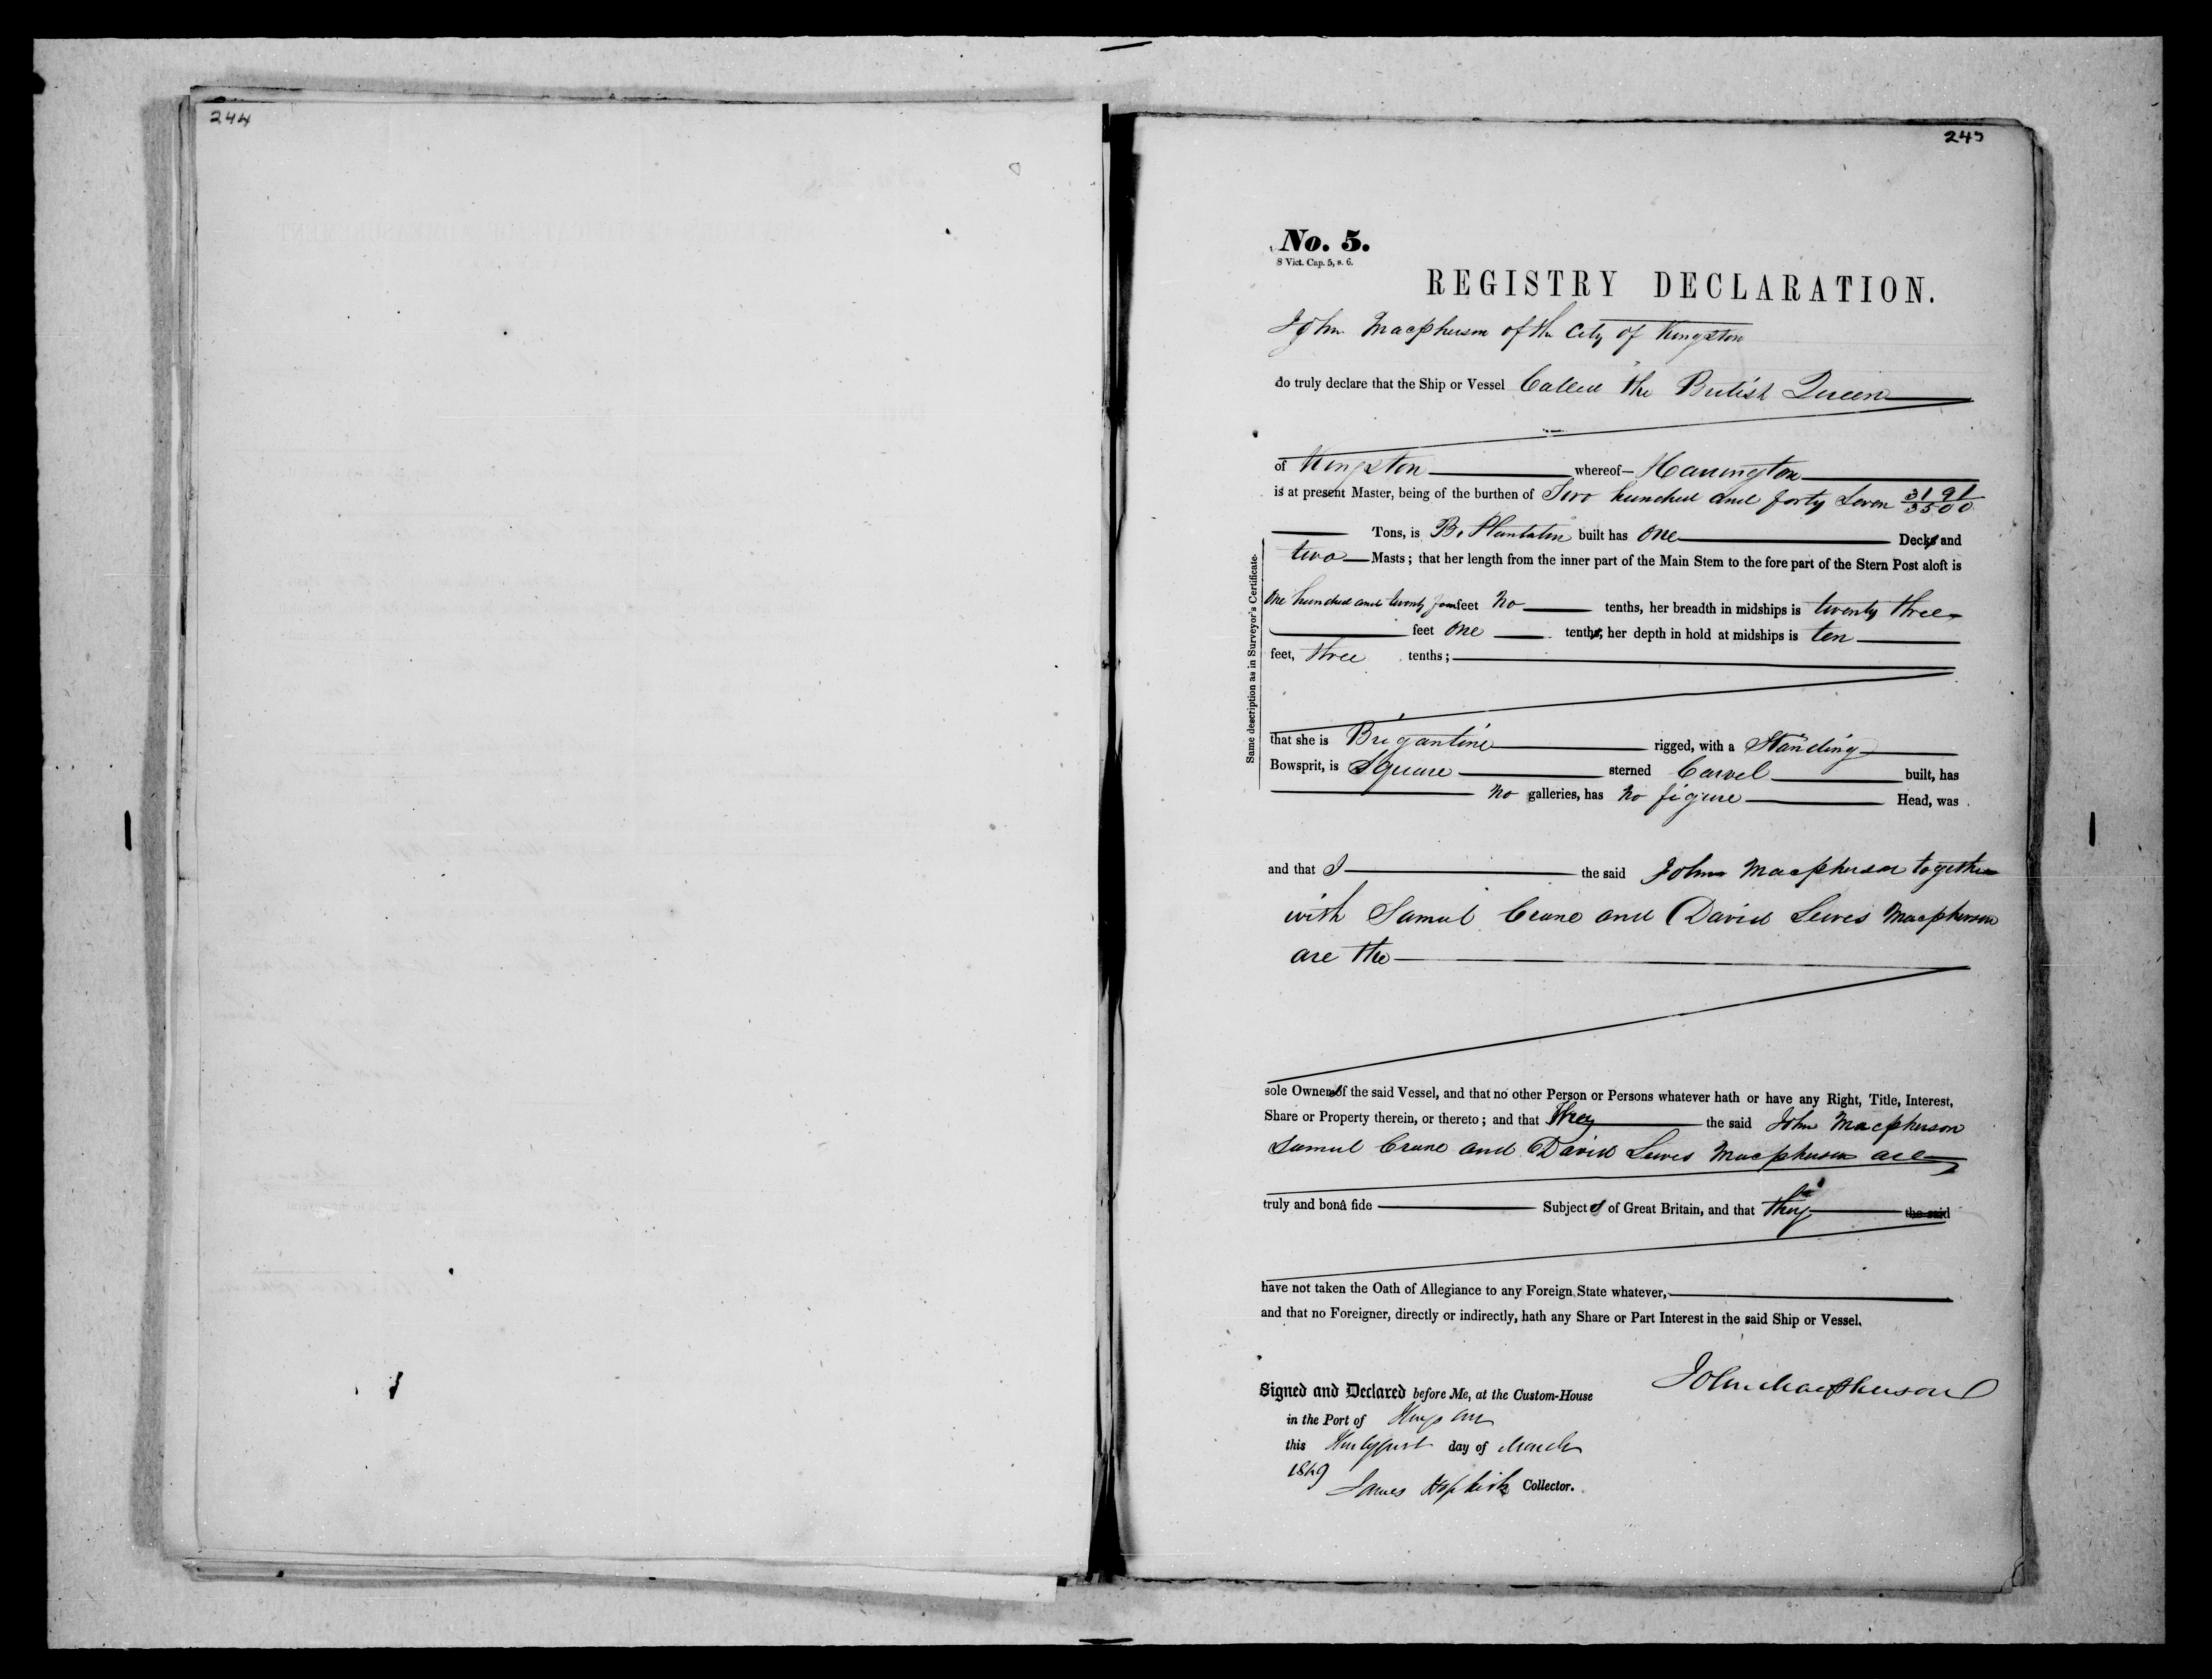 244
245
No. 5.
8 Vict. Cap. 5, s. 6.
REGISTRY DECLARATION.
John Macpherson of the City of Kingston
do truly declare that the Ship or Vessel Called the British Queen
of Kingston whereof Harrington
is at present Master, being of the burthen of Two hundred and forty Seven 3191/3500
Tons, is B. Plantation built has One Deck and
two Masts; that her length from the inner part of the Main Stem to the fore part of the Stern Post aloft is
One hundred and twenty four feet No tenths, her breadth in midships is twenty three
feet One tenth, her depth in hold at midships is ten
feet, three tenths;
Same description as in Surveyor's Certificate.
that she is Brigantine rigged, with a Standing
Bowsprit, is Square sterned Carvel built, has
No galleries, has No figure Head, was
and that I the said John Macpherson together
with Samuel Crane and David Lewes Macpherson
are the
sole Owners of the said Vessel, and that no other Person or Persons whatever hath or have any Right, Title, Interest,
Share or Property therein, or thereto; and that they the said John Macpherson
Samuel Crane and David Lewes Macpherson are
truly and bonâ fide Subjects of Great Britain, and that they the said
have not taken the Oath of Allegiance to any Foreign State whatever,
and that no Foreigner, directly or indirectly, hath any Share or Part Interest in the said Ship or Vessel.
John Macpherson
Signed and Declared before Me, at the Custom-House
in the Port of Kingston
this thirtyfirst day of March
1849
James Hopkirk Collector.